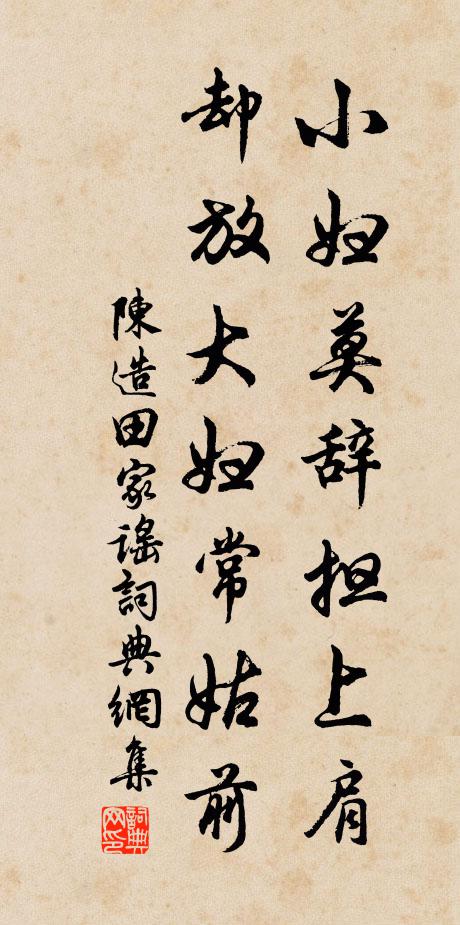 小妇莫辞担上肩
却放大妇常姑前
陳造田家謡詞典網集
詞典网印